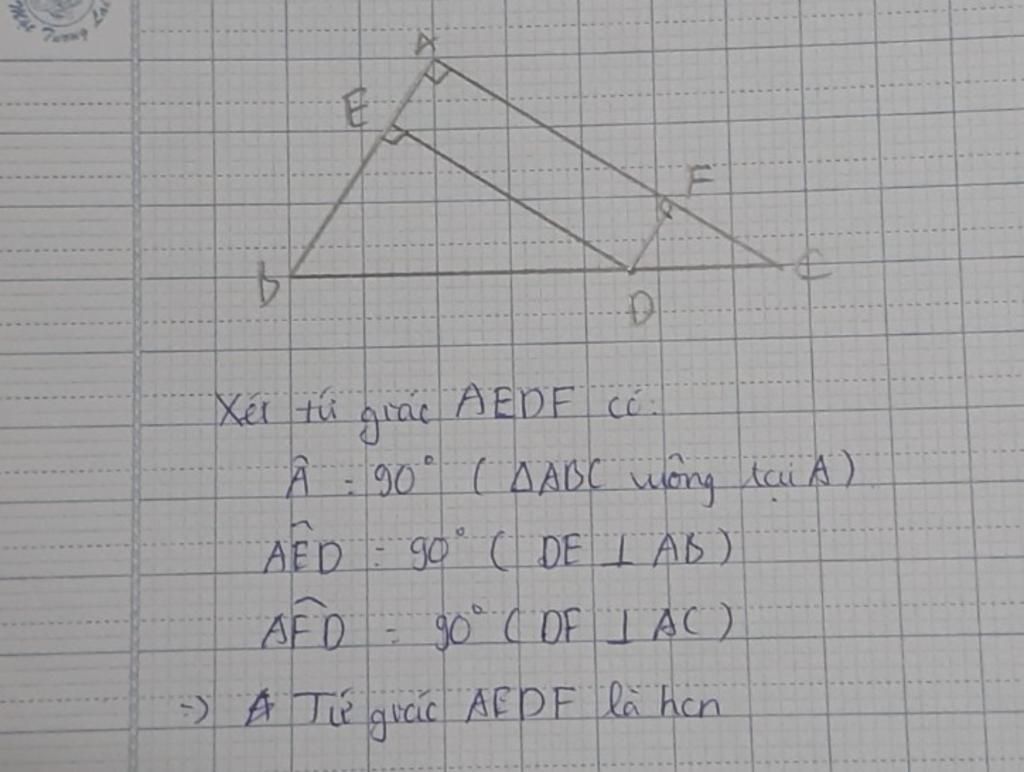 A
E
F
B
C
D
Xét tứ giác AEDF có:
Â = 90° ( ΔABC vuông tại A )
AED = 90° ( DE ⊥ AB )
AFD = 90° ( DF ⊥ AC )
=> Tứ giác AEDF là hcn